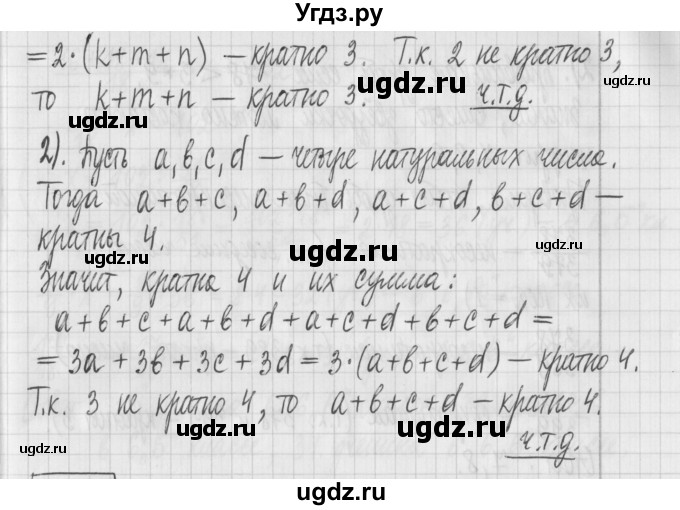 Угдз.ру
= 2·(k+m+n) – кратно 3. Т.к. 2 не кратно 3,
то k+m+n – кратно 3.
ч.т.д.
2). Пусть a, b, c, d – четыре натуральных числа.
Тогда a+b+c, a+b+d, a+c+d, b+c+d –
кратны 4.
Значит, кратна 4 и их сумма:
a+b+c+a+b+d+a+c+d+b+c+d=
= 3a + 3b + 3c + 3d = 3·(a+b+c+d) – кратно 4.
Т.к. 3 не кратно 4, то a+b+c+d – кратно 4.
ч.т.д.
ugdz.ru
ugdz.ru
ugdz.ru
ugdz.ru
ugdz.ru
ugdz.ru
ugdz.ru
ugdz.ru
ugdz.ru
ugdz.ru
ugdz.ru
ugdz.ru
ugdz.ru